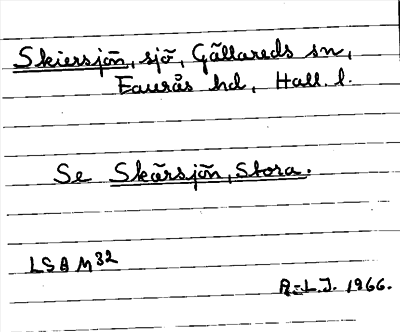 Skiersjön, sjö, Gällareds sn,
Faurås hd, Hall. l.
Se Skärsjön, Stora.
LSA M32
R-L.J. 1966.